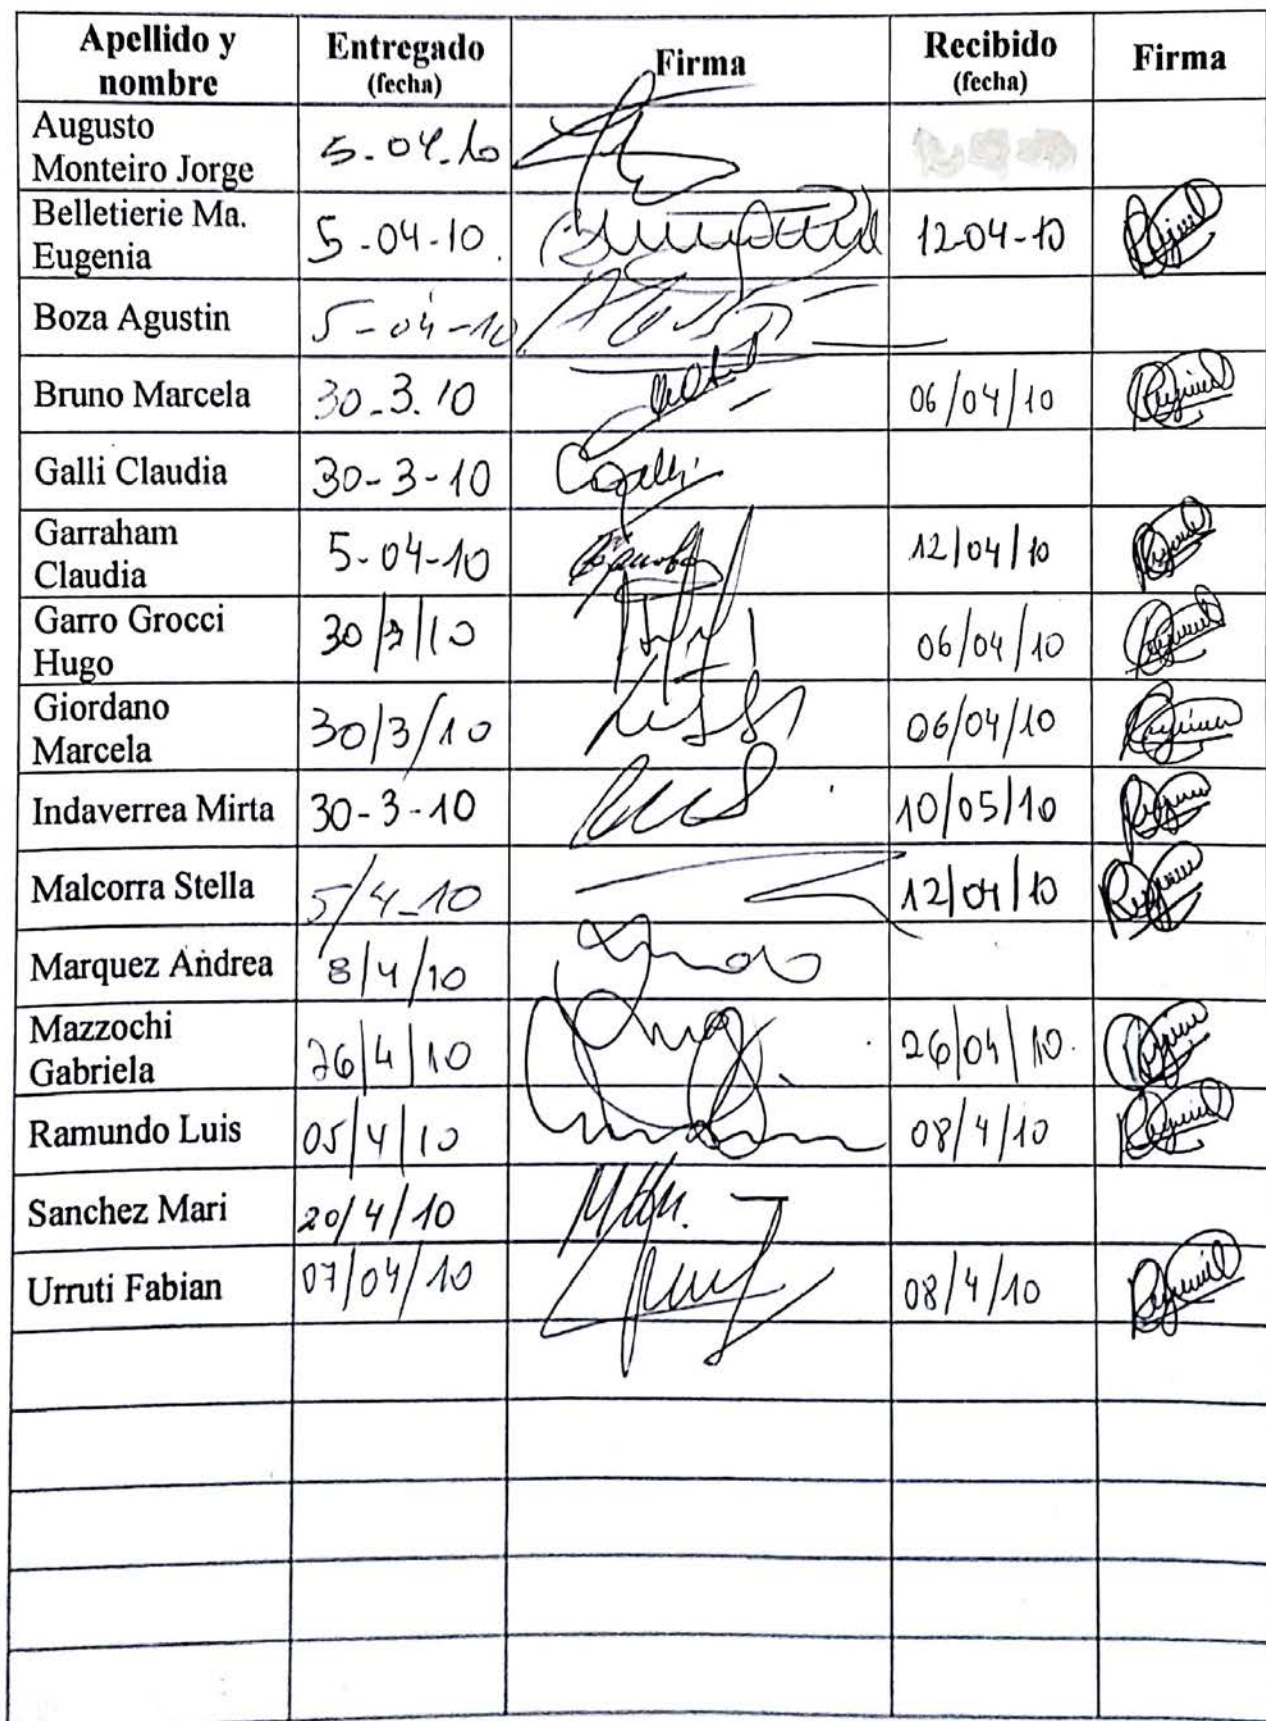 Apellido y nombre Entregado (fecha) Firma Recibido (fecha) Firma
Augusto Monteiro Jorge 5-04-10
Belletierie Ma. Eugenia 5-04-10. 12-04-10
Boza Agustin 5-04-10
Bruno Marcela 30-3.10 06/04/10
Galli Claudia 30-3-10 CGalli
Garraham Claudia 5-04-10 12/04/10
Garro Grocci Hugo 30/3/10 06/04/10
Giordano Marcela 30/3/10 06/04/10
Indaverrea Mirta 30-3-10 10/05/10
Malcorra Stella 5/4-10 12/04/10
Marquez Andrea 8/4/10
Mazzochi Gabriela 26/4/10 26/04/10.
Ramundo Luis 05/4/10 08/4/10
Sanchez Mari 20/4/10
Urruti Fabian 07/04/10 08/4/10